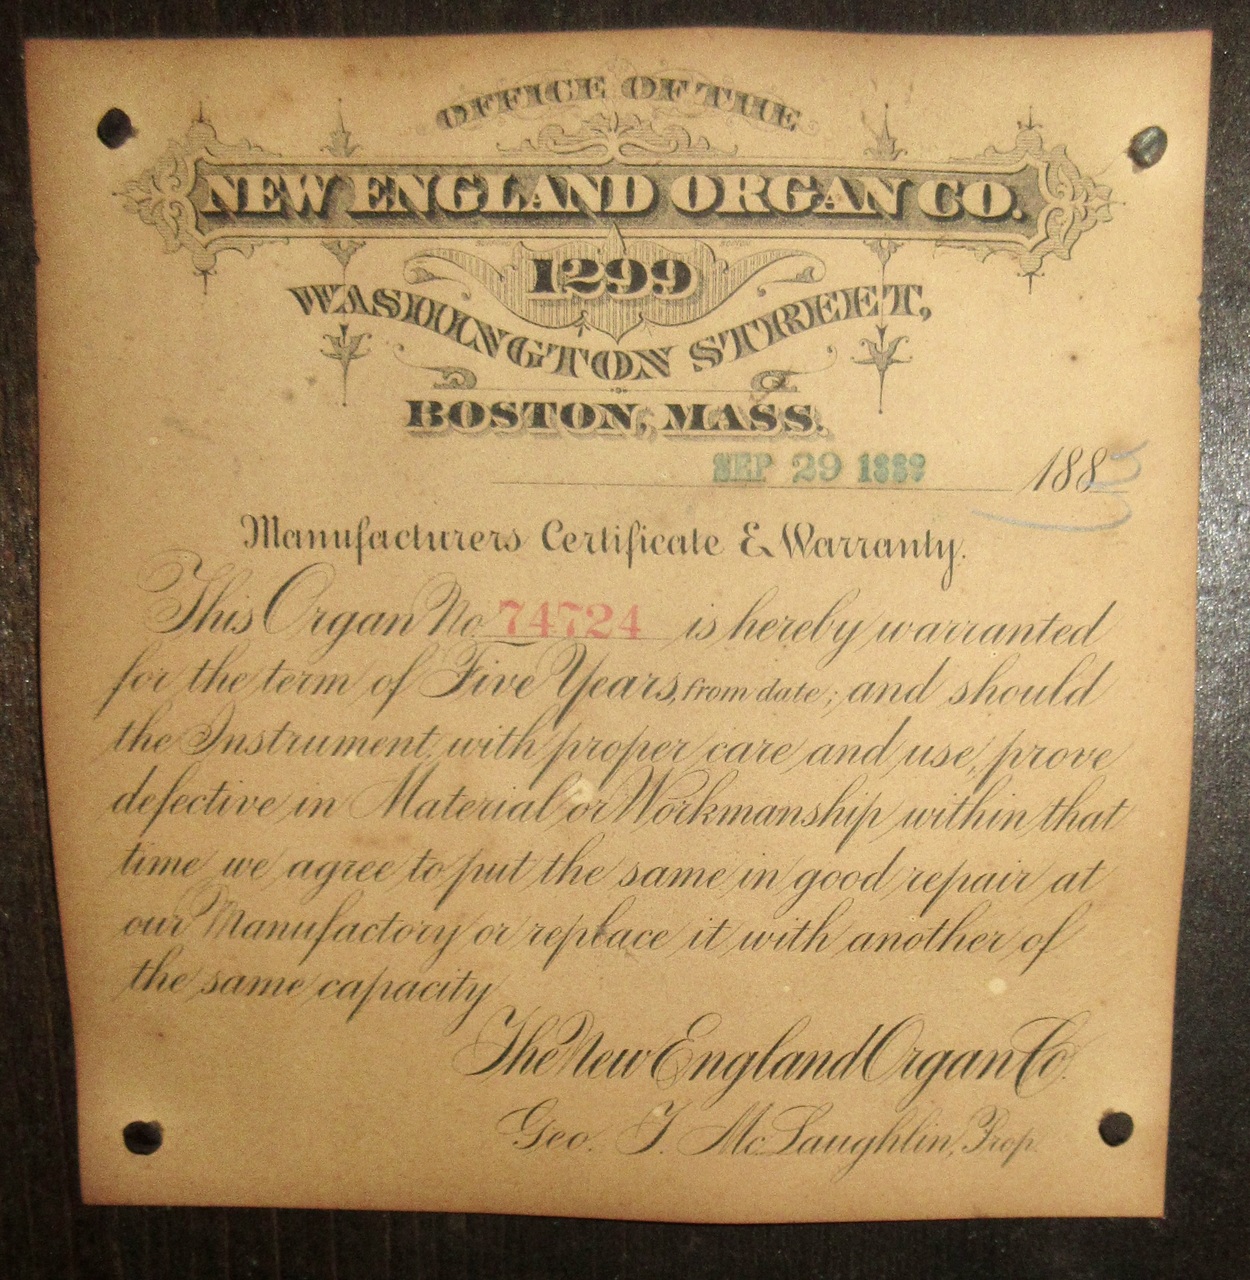 OFFICE OF THE
NEW ENGLAND ORGAN CO.
1299
WASHINGTON STREET,
BOSTON, MASS.
SEP 29 1889 188
Manufacturers Certificate & Warranty.
This Organ No. 74724 is hereby warranted
for the term of Five Years, from date; and should
the Instrument, with proper care and use, prove
defective in Material or Workmanship within that
time we agree to put the same in good repair at
our Manufactory or replace it with another of
the same capacity
The New England Organ Co.
Geo. T. McLaughlin, Prop.